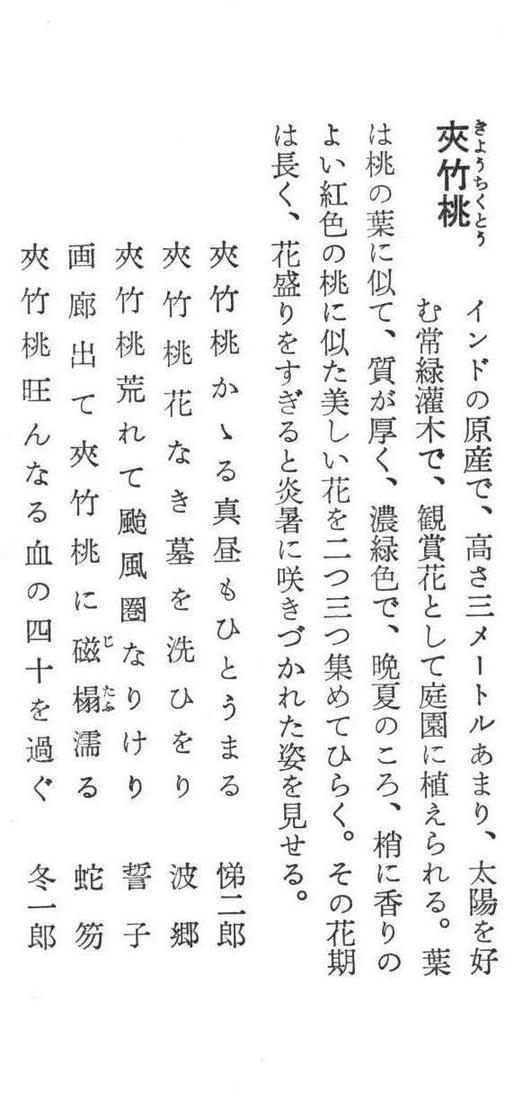 きょうちくとう
夾竹桃
インドの原産で、高さ三メートルあまり、太陽を好
む常緑灌木で、観賞花として庭園に植えられる。葉
は桃の葉に似て、質が厚く、濃緑色で、晩夏のころ、梢に香りの
よい紅色の桃に似た美しい花を二つ三つ集めてひらく。その花期
は長く、花盛りをすぎると炎暑に咲きづかれた姿を見せる。
夾竹桃かゝる真昼もひとうまる 悌二郎
夾竹桃花なき墓を洗ひをり 波郷
夾竹桃荒れて颱風圏なりけり 誓子
画廊出て夾竹桃に磁榻濡る 蛇笏
じ たふ
夾竹桃旺んなる血の四十を過ぐ 冬一郎